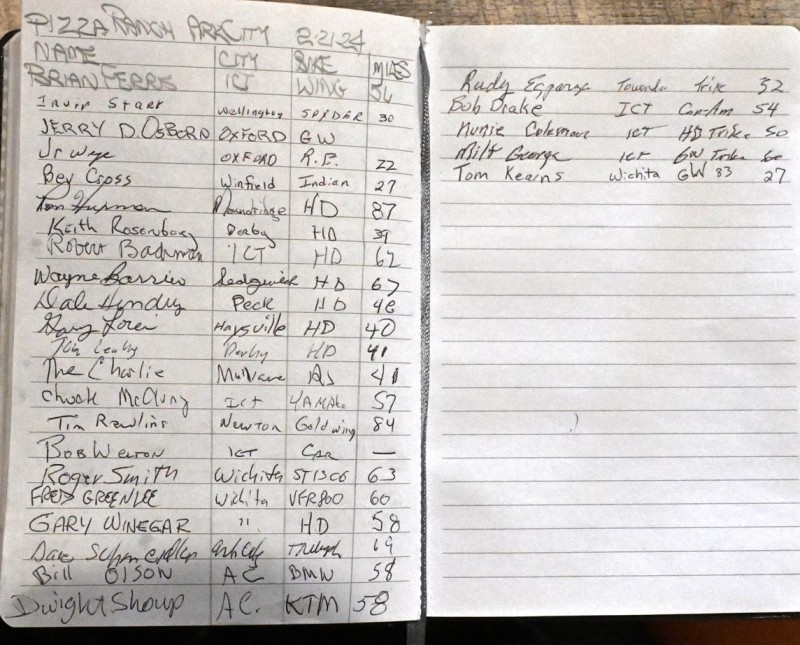 PIZZA RANCH ARKCITY 2-21-24
NAME CITY BIKE MILES
BRIAN FERRIS ICT WING 54
Irvin Starr Wellington SPYDER 30
JERRY D. OSBORN OXFORD GW
Jr Wye OXFORD R.E. 22
Bev Cross Winfield Indian 27
Moundridge HD 87
Keith Rosenberg Derby HD 39
Robert Bachman ICT HD 62
Wayne Sedgwick HD 67
Dale Hendry Peck HD 48
Gary Haysville HD 40
Derby HD 41
The Charlie Mulvane 41
Chuck McClung ICT YAMAHA 57
Tim Rawlins Newton Goldwing 84
BOB WESTON ICT CAR —
Roger Smith Wichita ST1300 63
FRED GREENLEE Wichita VFR800 60
GARY WINEGAR " HD 58
Dave Ark City Triumph 69
Bill OlSON AC BMW 58
Dwight Shoup A.C. KTM 58
Rudy Esparza Towanda Trike 32
Bob Drake ICT Can-Am 54
ICT HD Trike 50
Milt George ICT GW Trike 60
Tom Kearns Wichita GW 83 27